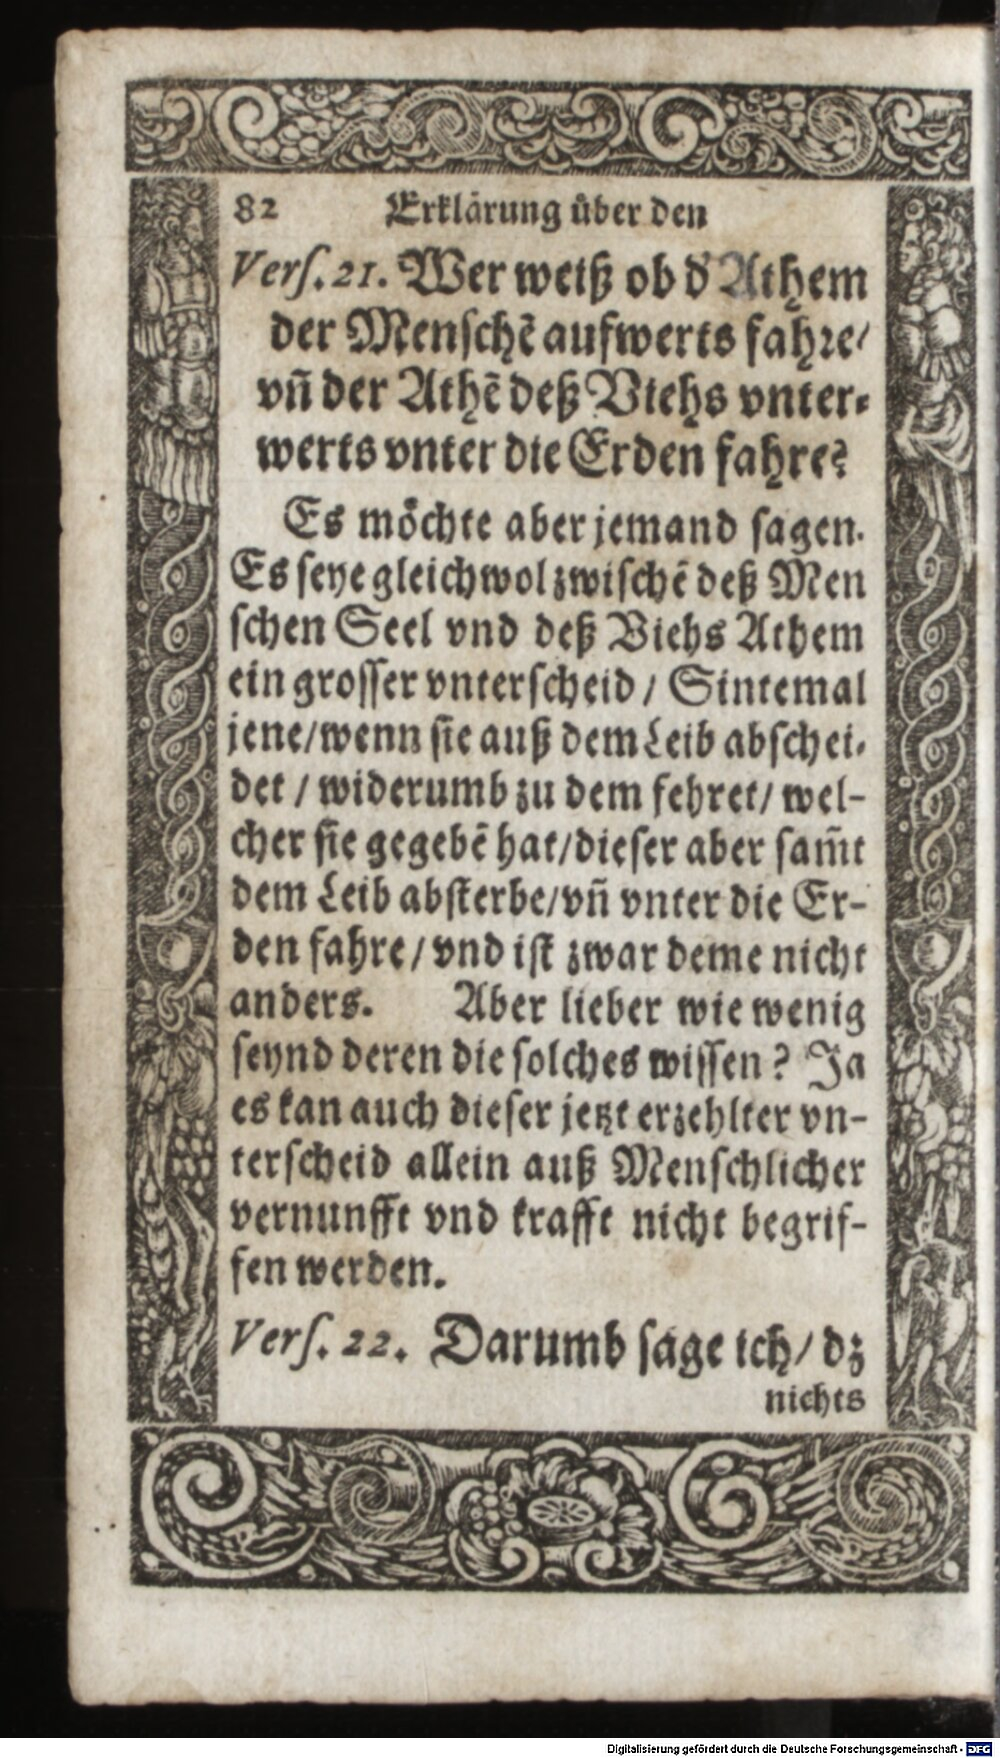 82 Erklärung über den
Vers. 21. Wer weiß ob d' Athem
der Menschē aufwerts fahre/
vñ der Athē deß Viehs vnter-
werts vnter die Erden fahre?
Es möchte aber jemand sagen.
Es seye gleichwol zwischē deß Men
schen Seel vnd deß Viehs Athem
ein grosser vnterscheid / Sintemal
jene/wenn sie auß dem Leib abschei-
det / widerumb zu dem fehret/ wel-
cher sie gegebē hat/dieser aber sam̃t
dem Leib absterbe/vñ vnter die Er-
den fahre / vnd ist zwar deme nicht
anders. Aber lieber wie wenig
seynd deren die solches wissen? Ja
es kan auch dieser jetzt erzehlter vn-
terscheid allein auß Menschlicher
vernunfft vnd krafft nicht begrif-
fen werden.
Vers. 22. Darumb sage ich/ dz
nichts
Digitalisierung gefördert durch die Deutsche Forschungsgemeinschaft - DFG